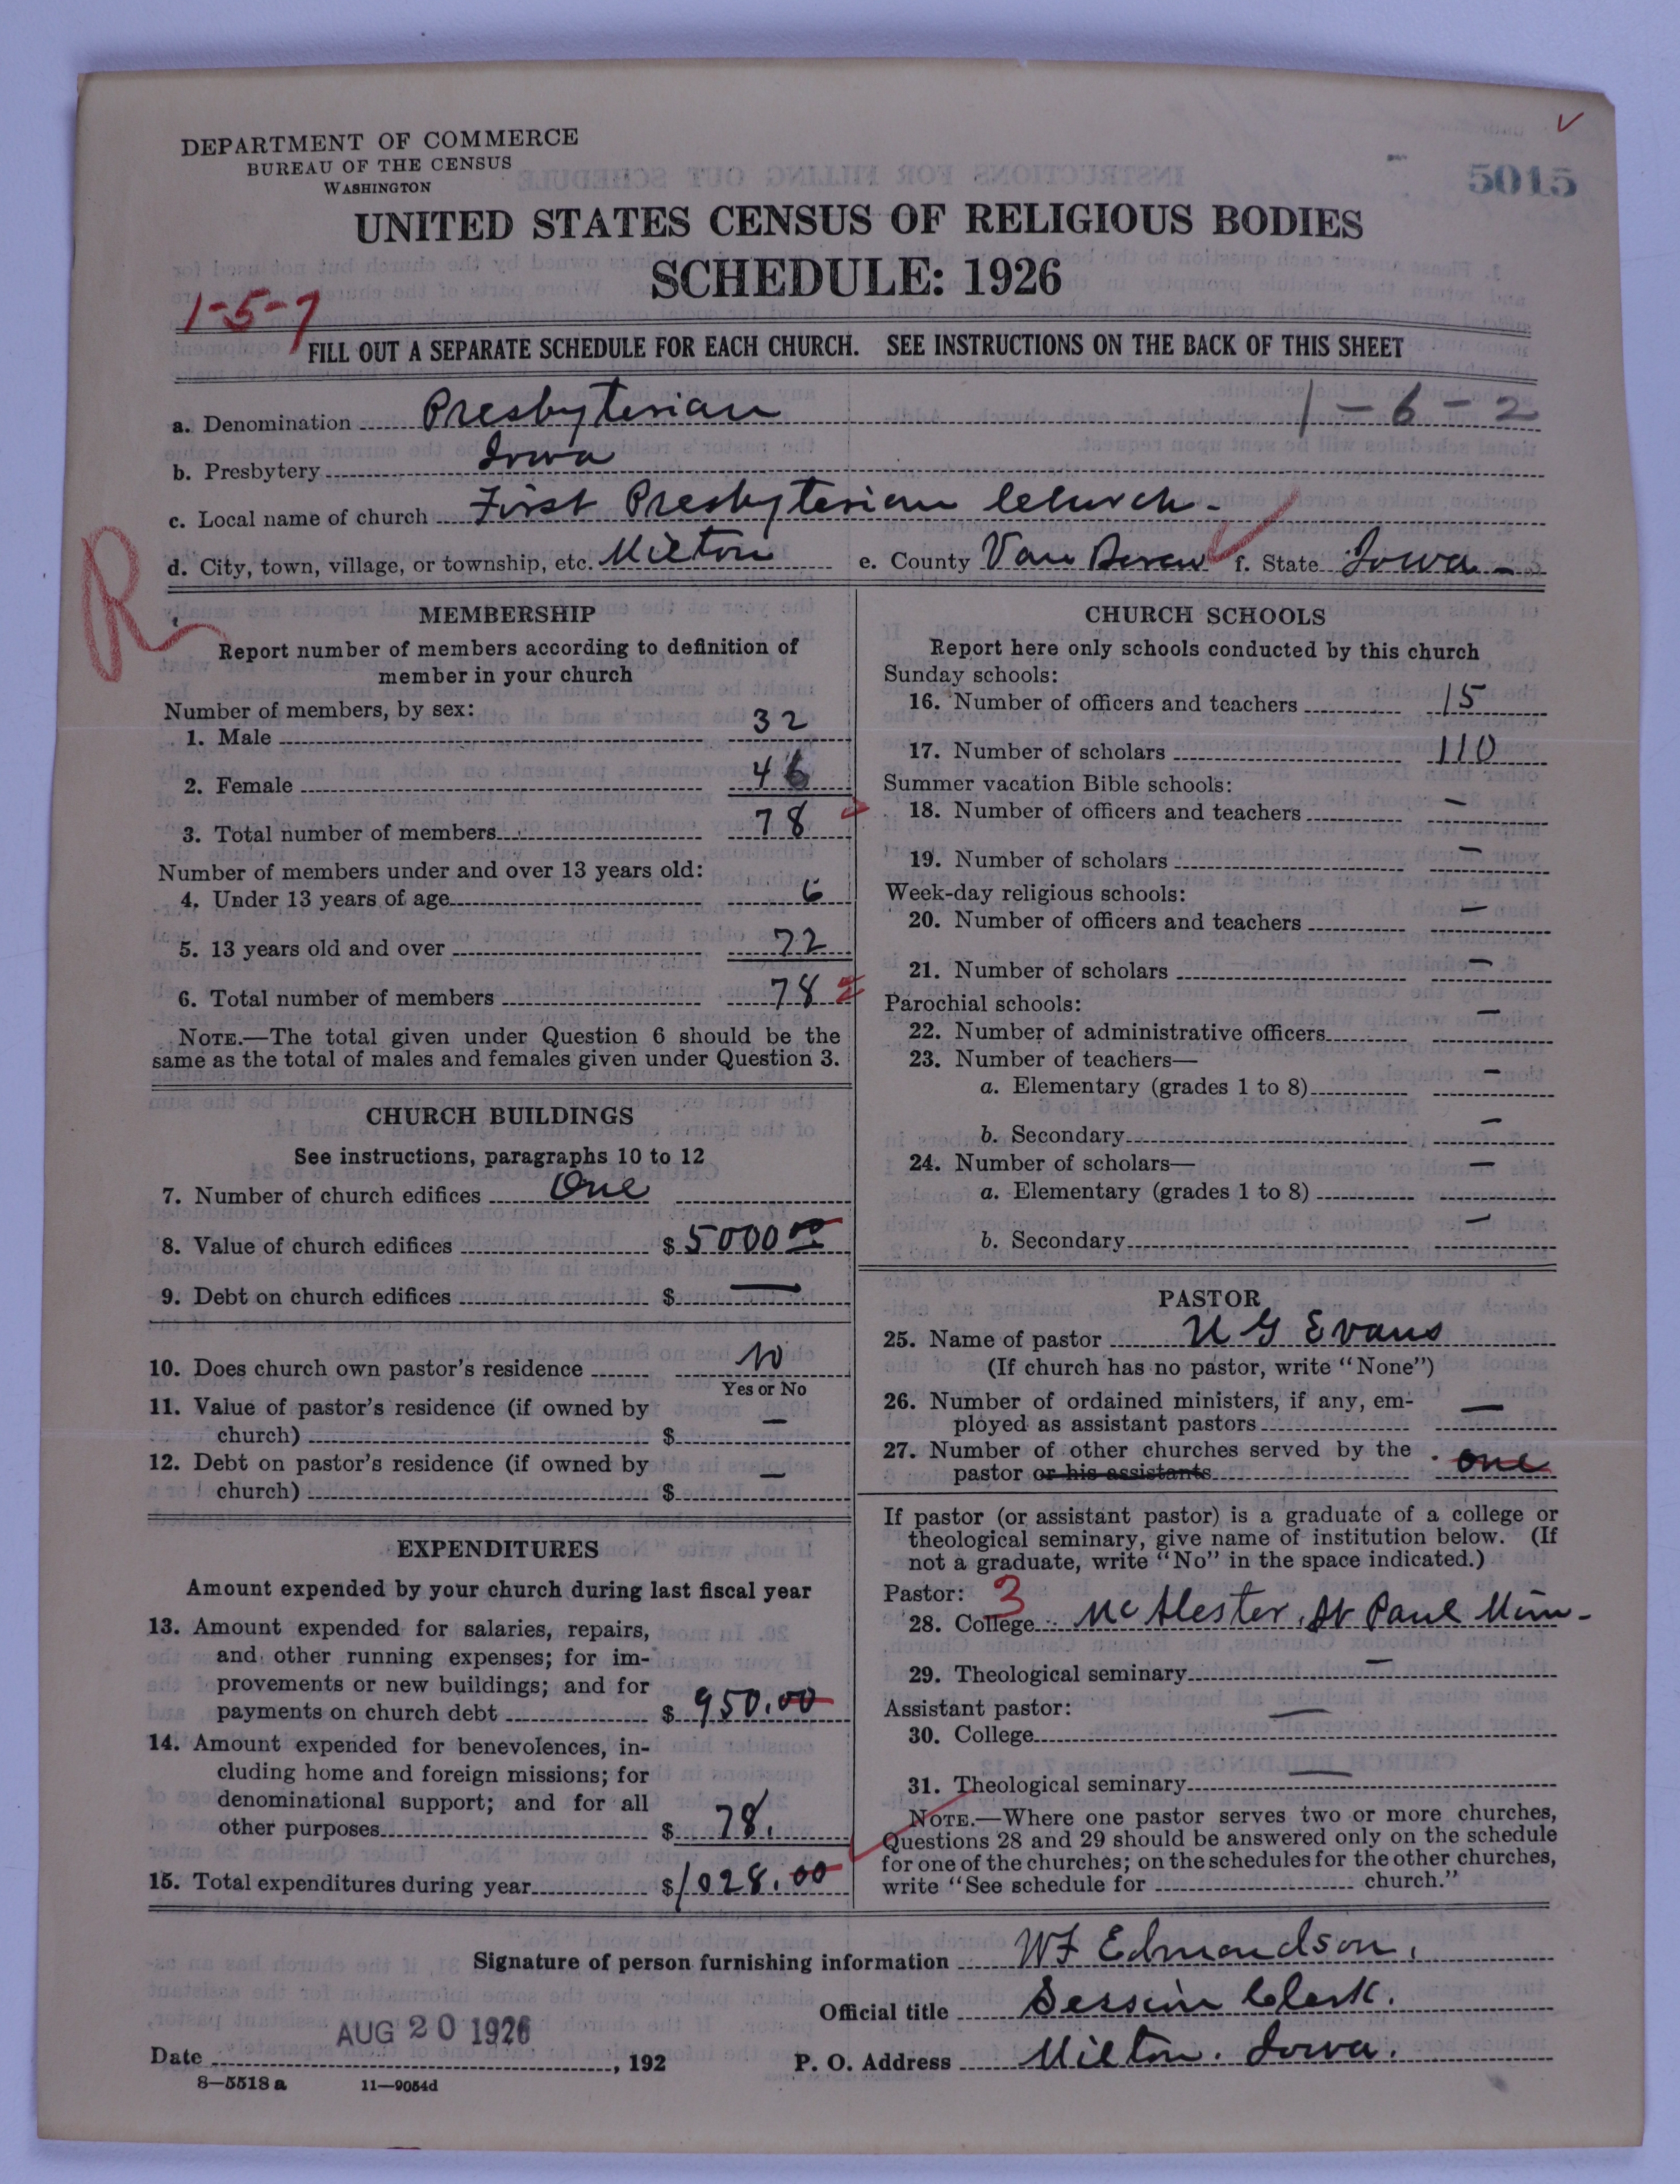 DEPARTMENT OF COMMERCE
BUREAU OF THE CENSUS
WASHINGTON
5015
UNITED STATES CENSUS OF RELIGIOUS BODIES
SCHEDULE: 1926
1-5-7
FILL OUT A SEPARATE SCHEDULE FOR EACH CHURCH. SEE INSTRUCTIONS ON THE BACK OF THIS SHEET
a. Denomination Presbyterian 1-6-2
b. Presbytery Iowa
c. Local name of church First Presbyterian Church.
d. City, town, village, or township, etc. Milton e. County Van Buren f. State Iowa
R
MEMBERSHIP
Report number of members according to definition of
member in your church
Number of members, by sex:
1. Male 32
2. Female 46
3. Total number of members 78
Number of members under and over 13 years old:
4. Under 13 years of age 6
5. 13 years old and over 72
6. Total number of members 78
NOTE.—The total given under Question 6 should be the
same as the total of males and females given under Question 3.
CHURCH BUILDINGS
See instructions, paragraphs 10 to 12
7. Number of church edifices One
8. Value of church edifices $ 5000 00
9. Debt on church edifices $ —
10. Does church own pastor's residence No
Yes or No
11. Value of pastor's residence (if owned by
church) $ —
12. Debt on pastor's residence (if owned by
church) $ —
EXPENDITURES
Amount expended by your church during last fiscal year
13. Amount expended for salaries, repairs,
and other running expenses; for im-
provements or new buildings; and for
payments on church debt $ 950.00
14. Amount expended for benevolences, in-
cluding home and foreign missions; for
denominational support; and for all
other purposes $ 78.
15. Total expenditures during year $ 1028.00
CHURCH SCHOOLS
Report here only schools conducted by this church
Sunday schools:
16. Number of officers and teachers 15
17. Number of scholars 110
Summer vacation Bible schools:
18. Number of officers and teachers —
19. Number of scholars —
Week-day religious schools:
20. Number of officers and teachers —
21. Number of scholars —
Parochial schools:
22. Number of administrative officers —
23. Number of teachers—
a. Elementary (grades 1 to 8) —
b. Secondary —
24. Number of scholars—
a. Elementary (grades 1 to 8) —
b. Secondary —
PASTOR
25. Name of pastor U G Evans
(If church has no pastor, write "None")
26. Number of ordained ministers, if any, em-
ployed as assistant pastors —
27. Number of other churches served by the
pastor or his assistants one
If pastor (or assistant pastor) is a graduate of a college or
theological seminary, give name of institution below. (If
not a graduate, write "No" in the space indicated.)
Pastor: 3
28. College McAlester, St Paul Minn-
29. Theological seminary —
Assistant pastor:
30. College —
31. Theological seminary —
NOTE.—Where one pastor serves two or more churches,
Questions 28 and 29 should be answered only on the schedule
for one of the churches; on the schedules for the other churches,
write "See schedule for church."
Signature of person furnishing information WF Edmondson.
Official title Session Clerk.
AUG 20 1926
Date , 192
P. O. Address Milton. Iowa.
8—5518 a 11—9054d